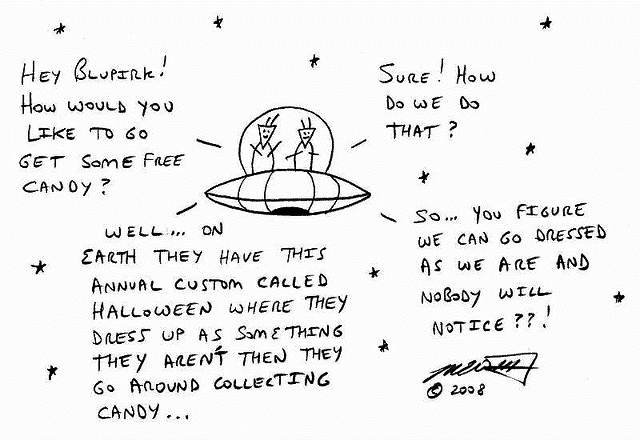 HEY BLUPIRK!
HOW WOULD YOU
LIKE TO GO
GET SOME FREE
CANDY?
SURE! HOW
DO WE DO
THAT?
WELL... ON
EARTH THEY HAVE THIS
ANNUAL CUSTOM CALLED
HALLOWEEN WHERE THEY
DRESS UP AS SOMETHING
THEY AREN'T THEN THEY
GO AROUND COLLECTING
CANDY...
SO... YOU FIGURE
WE CAN GO DRESSED
AS WE ARE AND
NOBODY WILL
NOTICE??!
© 2008